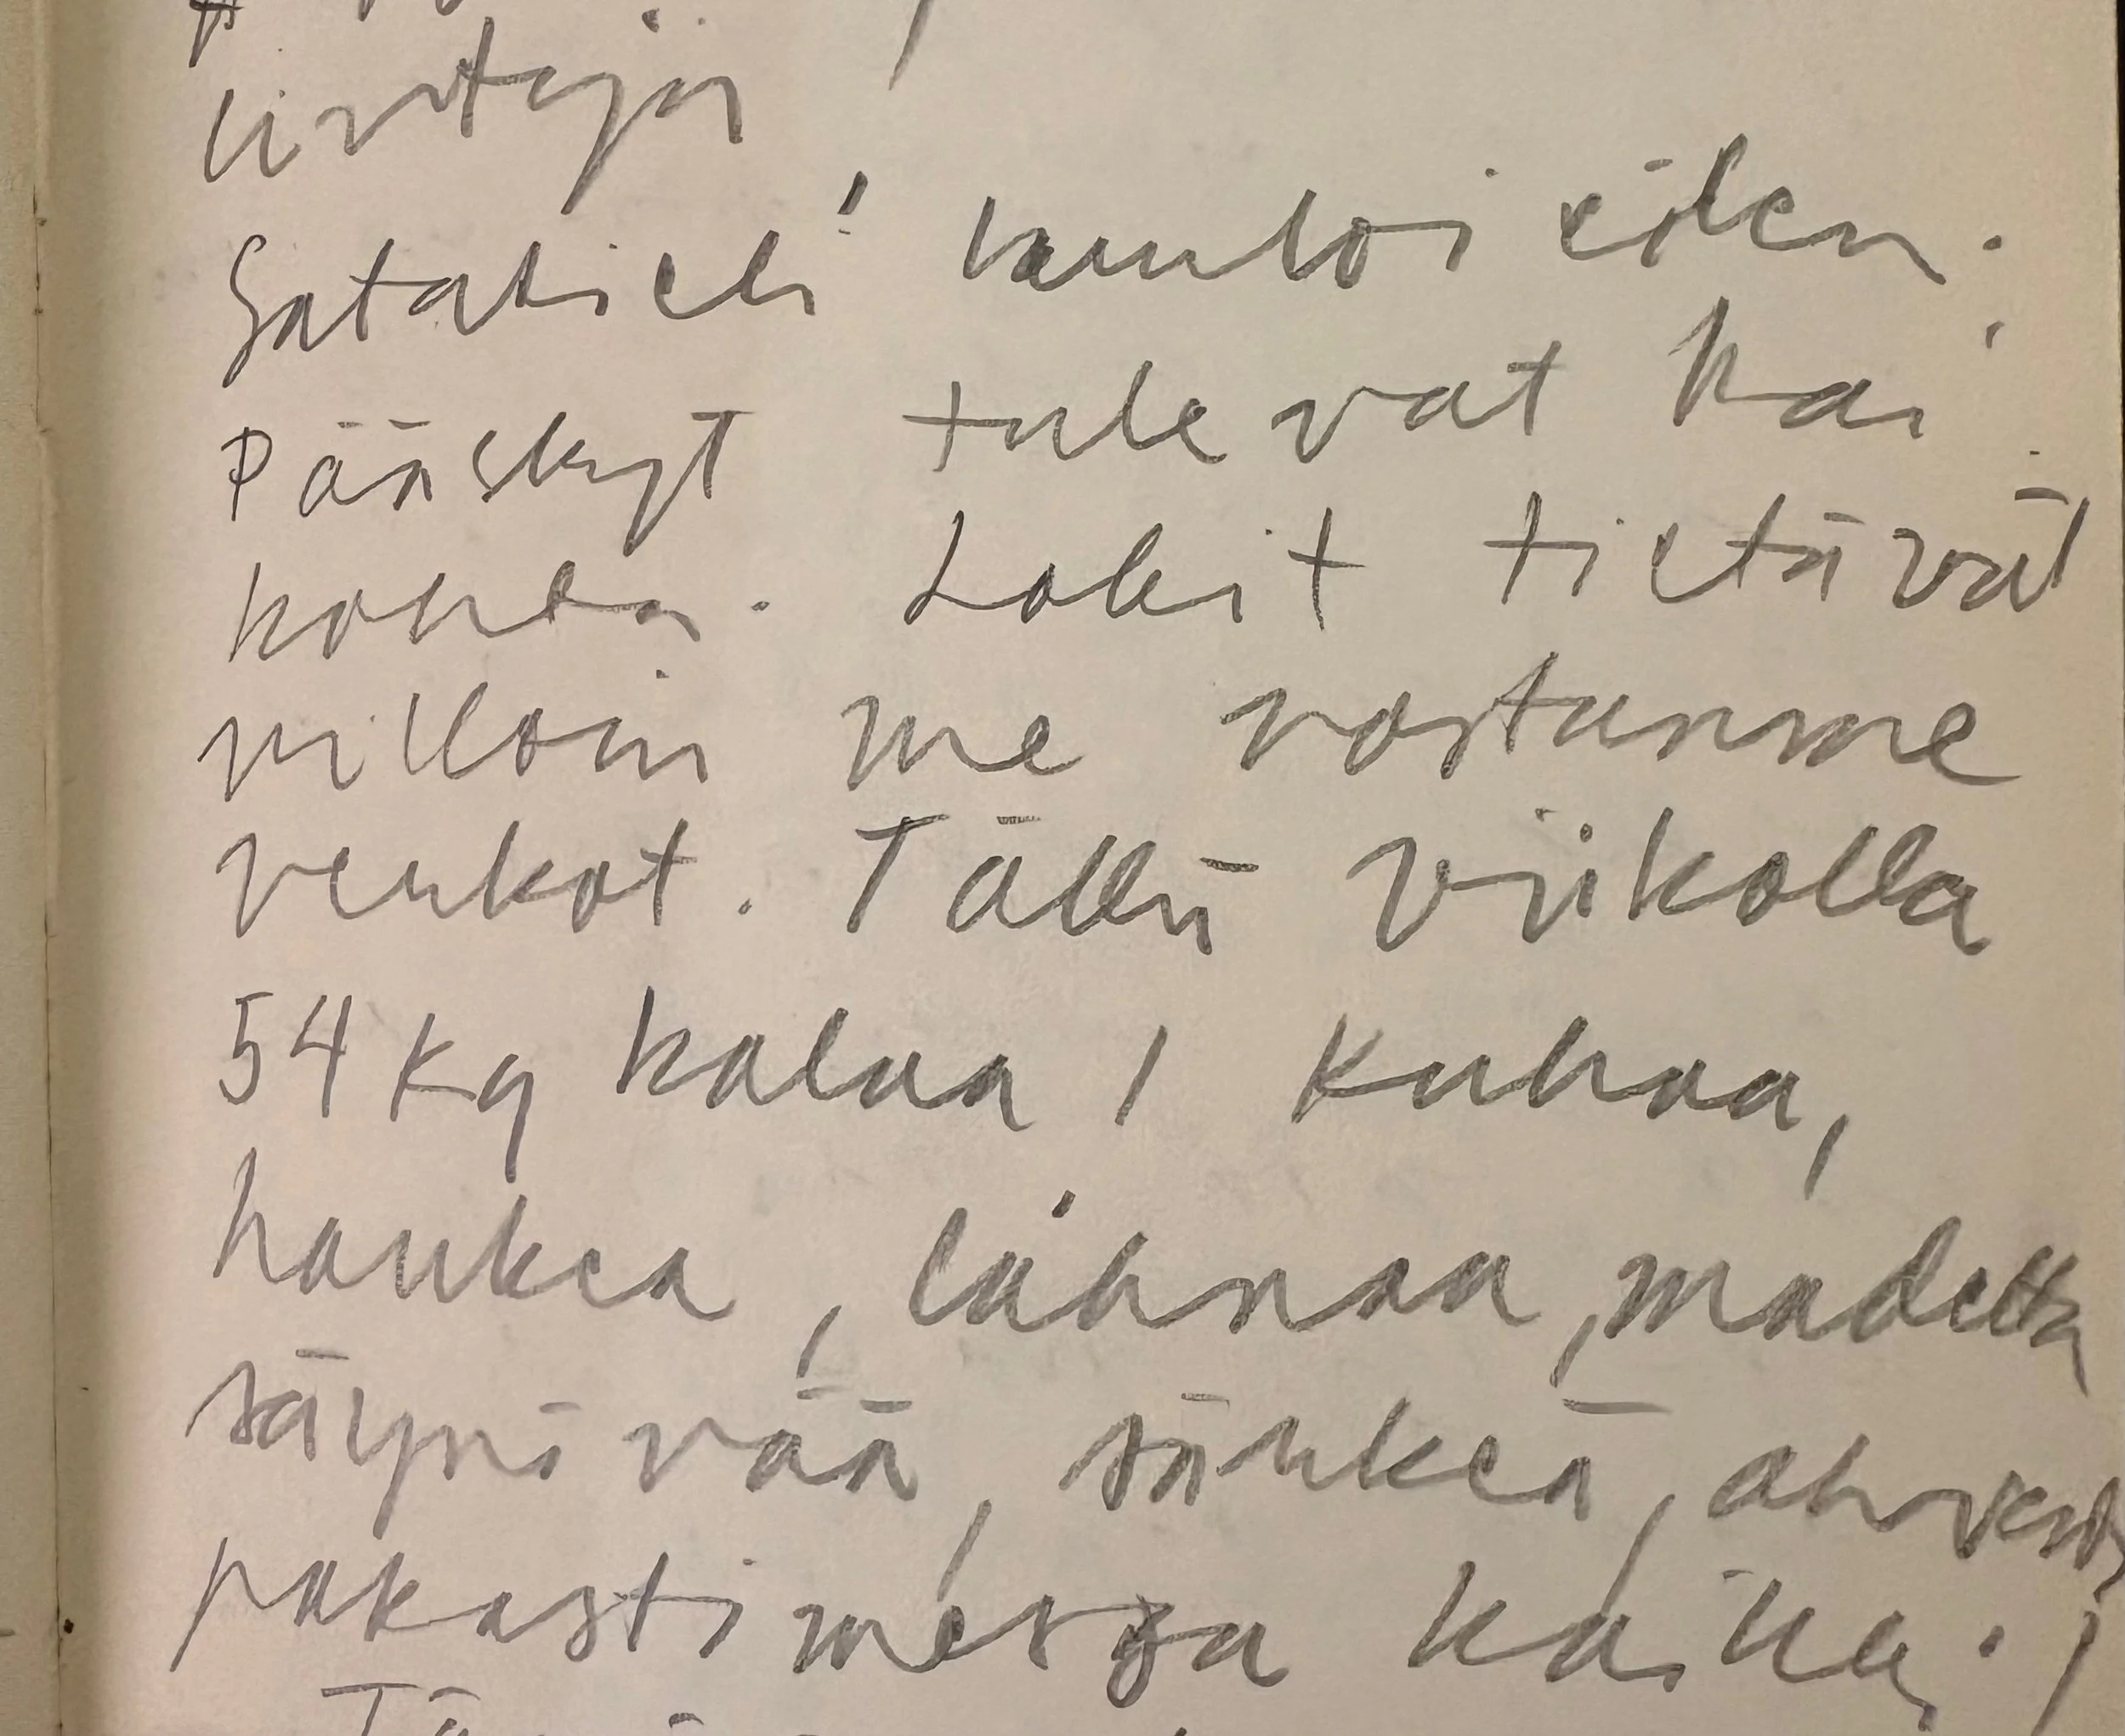 Satakieli lauloi eilen.
Pääskyt tulevat kai
kohta. Lokit tietävät
milloin me nostamme
verkot. Tällä viikolla
54 kg kalaa / Kuhaa,
haukea, lahnaa, madetta
säynävää, särkeä, ahventa
pakastimessa kaikki.